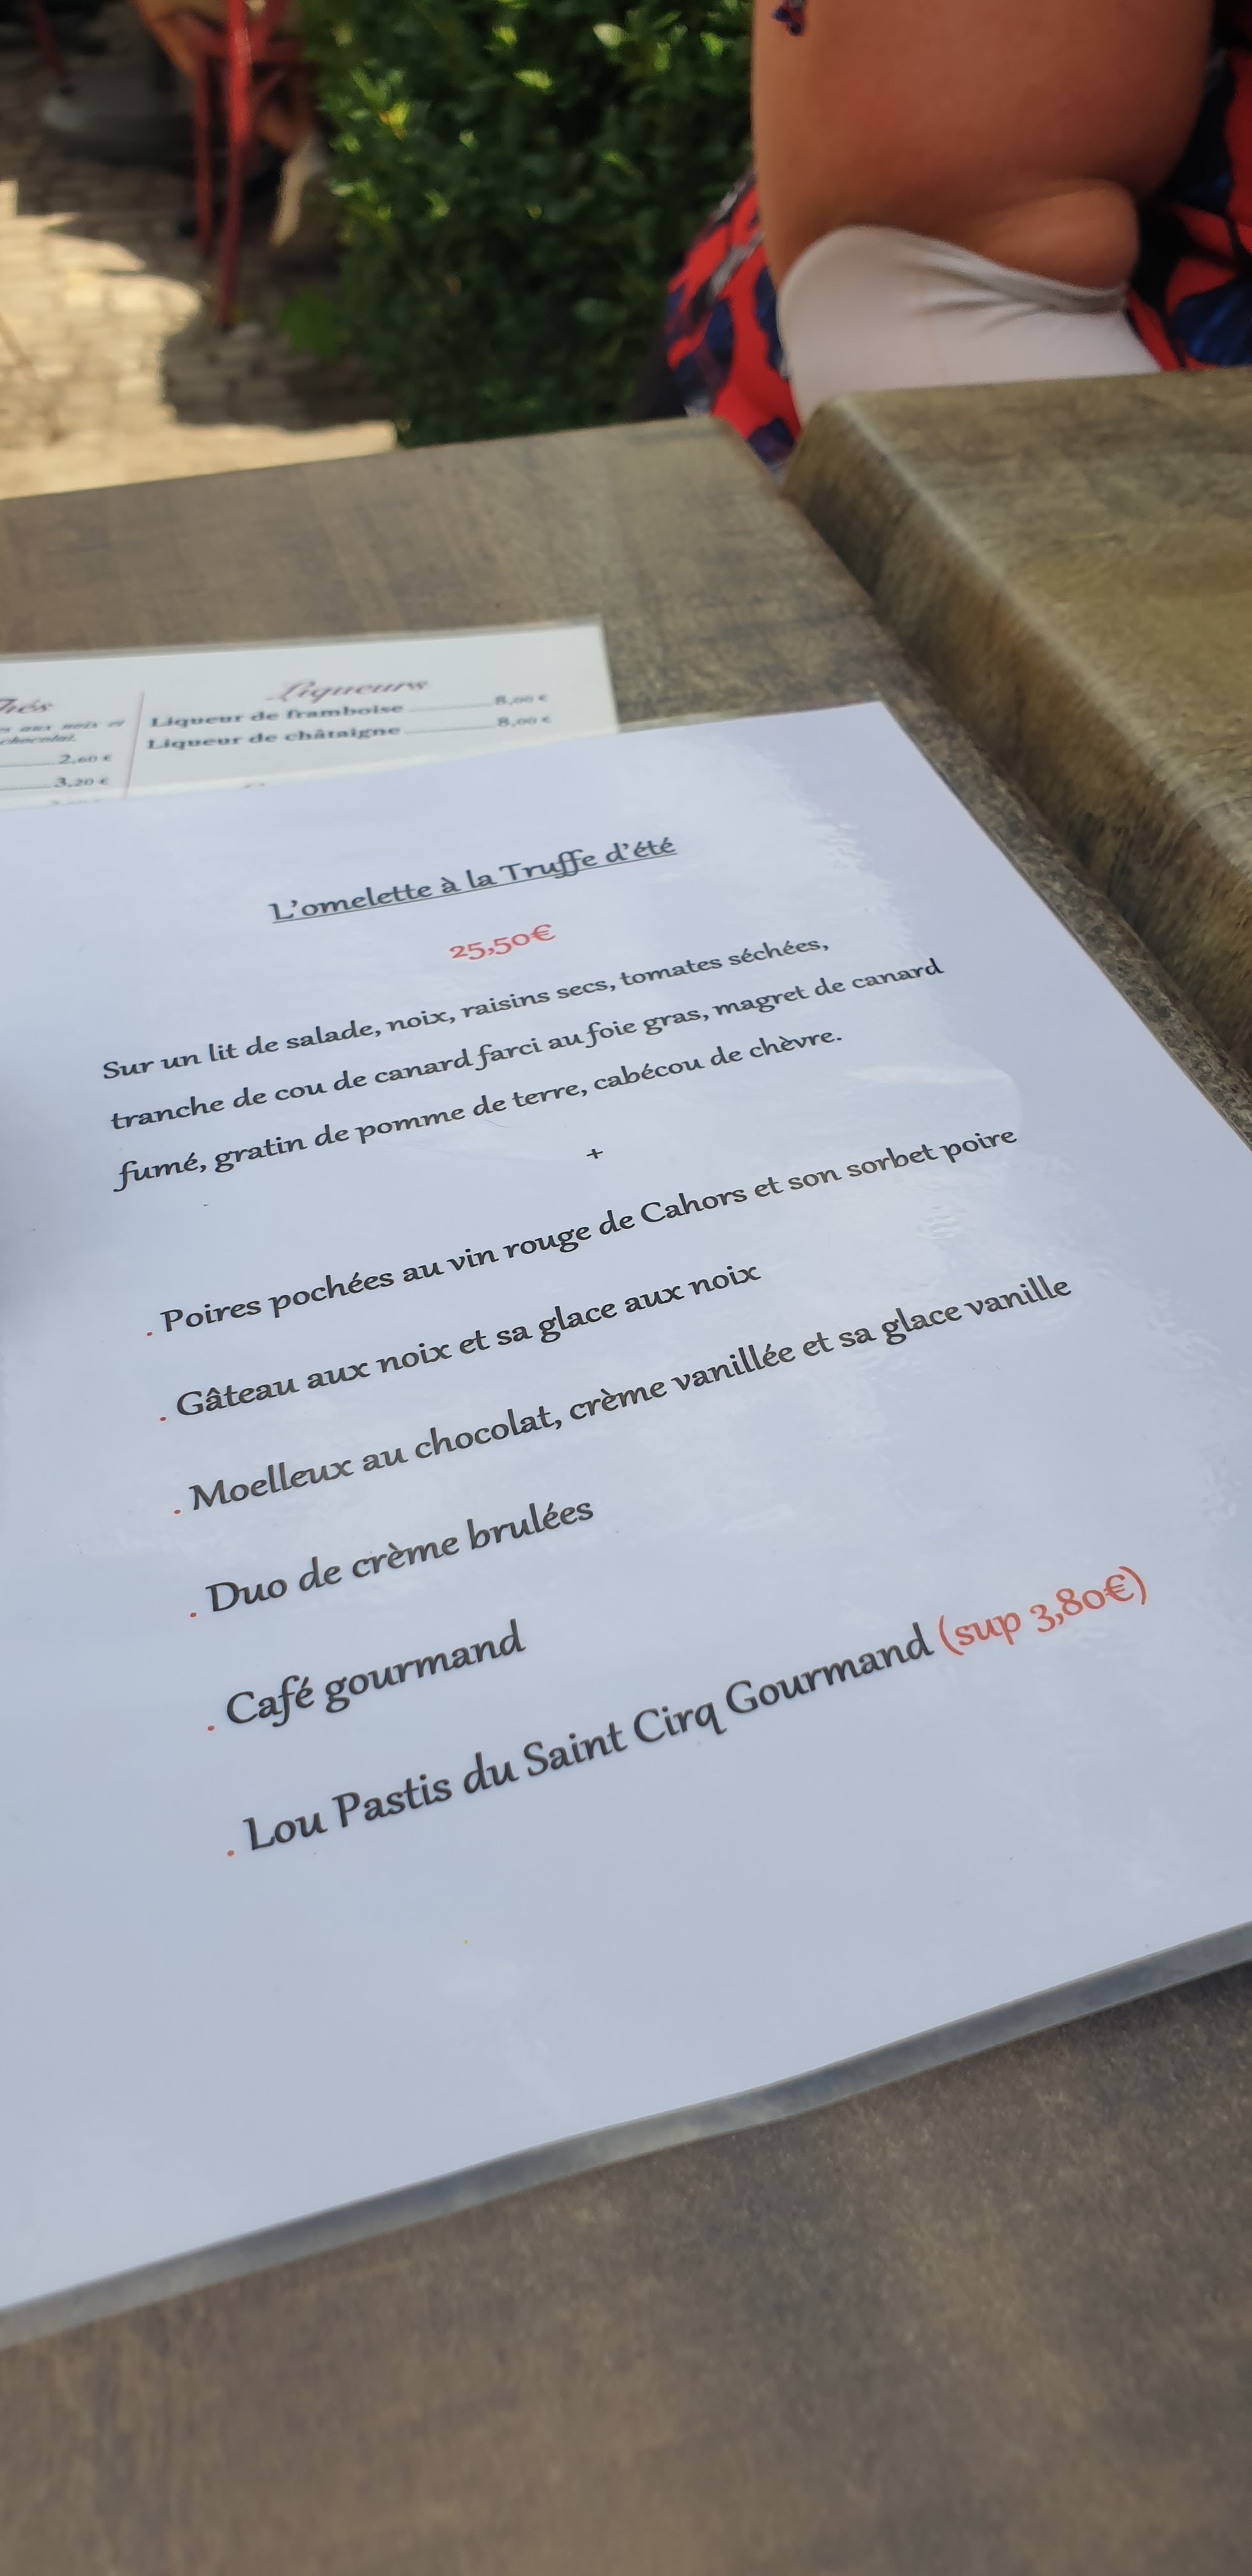 Liqueurs
Liqueur de framboise 8,00 €
Liqueur de châtaigne 8,00 €
chocolat.
2,60 €
3,20 €
L'omelette à la Truffe d'été
25,50€
Sur un lit de salade, noix, raisins secs, tomates séchées,
tranche de cou de canard farci au foie gras, magret de canard
fumé, gratin de pomme de terre, cabécou de chèvre.
+
. Poires pochées au vin rouge de Cahors et son sorbet poire
. Gâteau aux noix et sa glace aux noix
. Moelleux au chocolat, crème vanillée et sa glace vanille
. Duo de crème brulées
. Café gourmand
. Lou Pastis du Saint Cirq Gourmand (sup 3,80€)